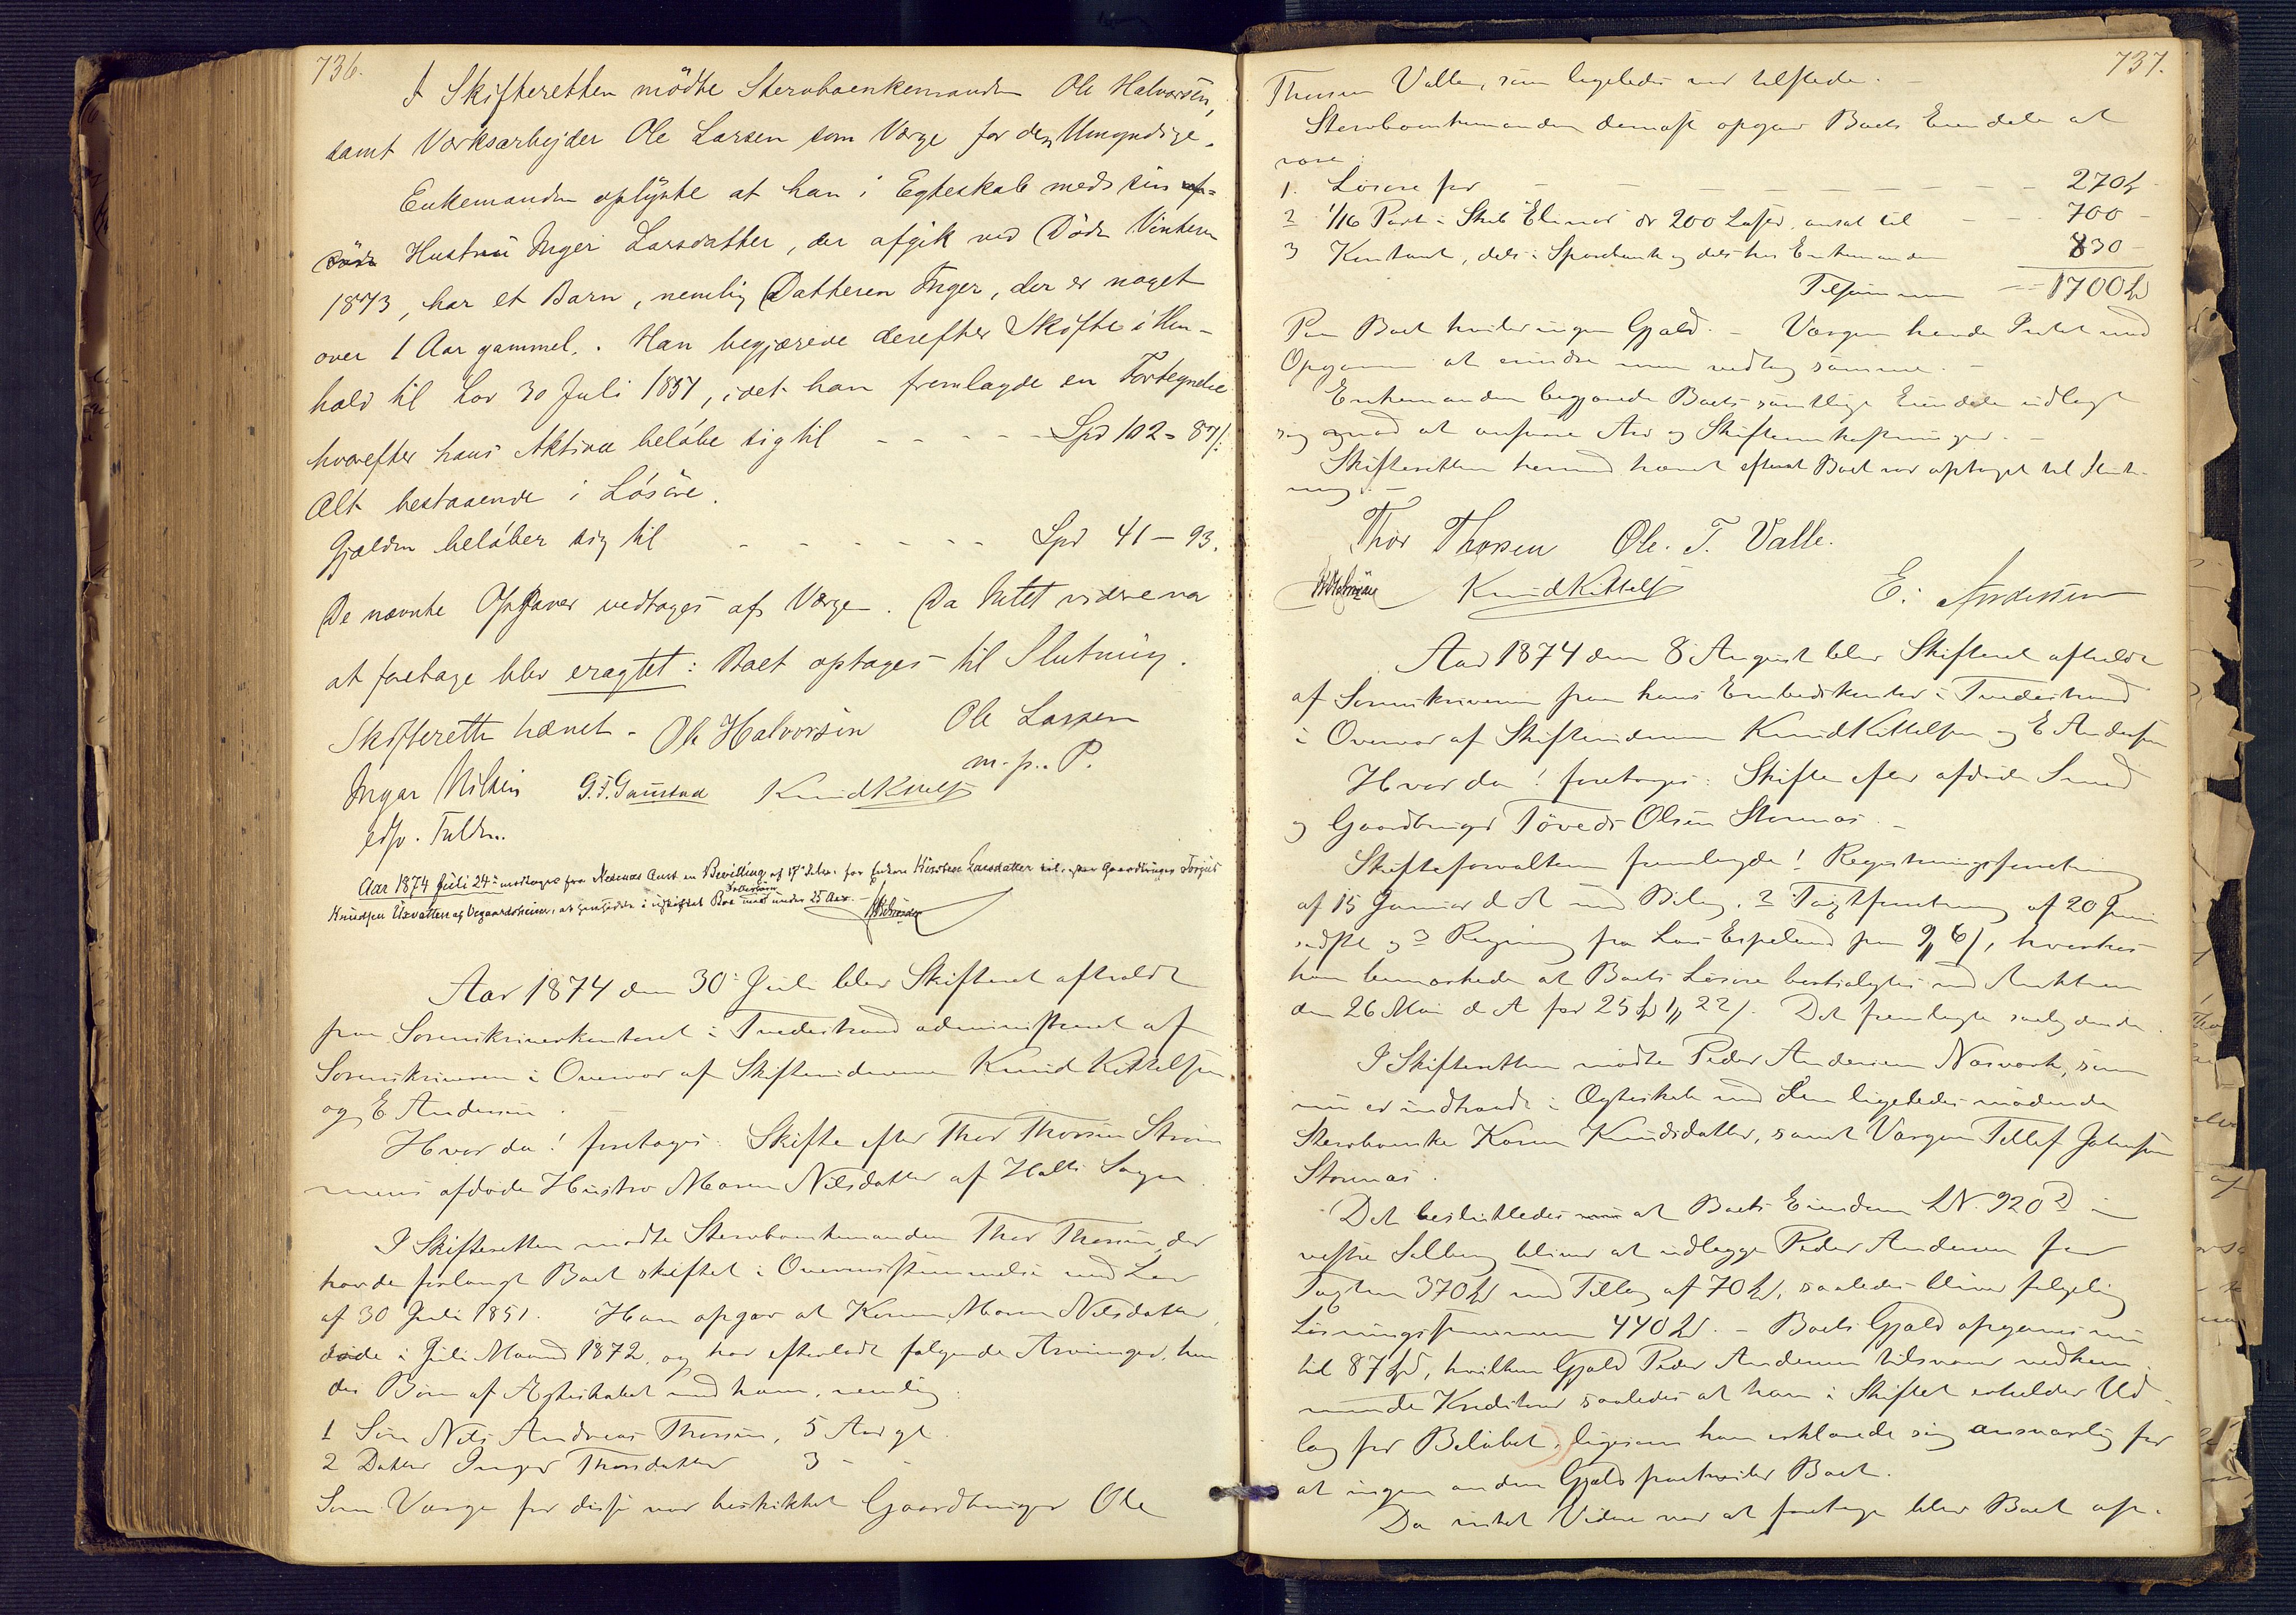 736.
I Skifteretten mödte Stervboenkemanden Ole Halvorsen,
samt Værksarbejder Ole Larsen som Værge for den Umyndige.
Enkemanden oplyste at han i Egteskab med sin af-
döde Hustru Inger Larsdatter, der afgik ved Döden Vinteren
1873, har et Barn, nemlig Datteren Inger, der er noget
over 1 Aar gammel. Han begjærede derefter Skifte i Hen-
hold til Lov 30 Juli 1851, idet han fremlagde en Fortegnelse
hvorefter hans Aktiva beløbe sig til - - - - - Spd 102 = 87/:
Alt bestaaende i Lösöre.
Gjælden beløber sig til - - - - - - Spd 41 - 93.
De nævnte Opgaver vedtages af Værgen. Da Intet videre var
at foretage blev eragtet: Boet optages til Slutning.
Skifteretten hævet. Ole Halvorsen Ole Larssen
m. p. P.
Ingar Nilsen G. T. Gaustad Knud Kittelsen
edsv. Fuldm.
Aar 1874 Juli 24de modtoges fra Nedenæs Amt en Bevilling af 17de for Enken Kirsten Larsdatter efter Gaardbruger Torjus
Knudsen Uvatten af Vegaardsheien, at hensidde i uskiftet Bo med under 25 Aar. -
Aar 1874 den 30te Juli blev Skifteret afholdt
paa Sorenskriverkontoret i Tvedestrand administreret af
Sorenskriveren i Overvær af Skiftevidnerne Knud Kittelsen
og E Andersen.
Hvor da! foretoges: Skifte efter Thor Thorsen Ström
mens afdøde Hustro Maren Nilsdatter af Holts Sogn.
I Skifteretten mödte Stervboenkemanden Thor Thorsen der
havde forlangt Boet skiftet i Overensstemmelse med Lov
af 30 Juli 1851. Han opgav at Konen Maren Nilsdatter,
döde i Juli Maaned 1872, og har efterladt følgende Arvinger, hen
des Börn af Ægteskabet med ham, nemlig:
1 Sön Nils Andreas Thorsen, 5 Aar gl
2 Datter Inger Thorsdatter 3 -
Som Værge for disse var beskikket Gaardbruger Ole
737.
Thorsen Valle, som ligeledes var tilstede. -
Stervboenkemanden dernæst opgav Boets Eiendele at
være:
1. Lösöre for - - - - - - 270 -
2 1/16 Part i Skib "Elinor" dr 200 Læster, ansat til - - - 700 -
3 Kontant, dels i Sparebank og dels hos Enkemanden 830 -
Tilsammen - - 1700 Spd
Paa Boet hviler ingen Gjæld. - Værgen havde Intet mod
Opgaven at erindre men vedtog samme. -
Enkemanden begjærede Boets samtlige Eiendele udlagt
sig mod at ansvare Arv og Skifteomkostninger. -
Skifteretten hermed hævet efterat Boet var optaget til Slut-
ning. -
Thor Thorsen Ole. T. Valle.
Knud Kittelsen E. Andersen
Aar 1874 den 8 August blev Skifteret afholdt
af Sorenskriveren paa hans Embedskontor i Tvedestrand
i Overvær af Skiftevidnerne Knud Kittelsen og E Andersen
Hvor da! foretoges: Skifte efter afdøde Smed
og Gaardbruger Töveds Olsen Stornæs. -
Skifteforvalteren fremlagde! Registreringsforretning
af 15 Januar d. A med Bilag, 2 Taxtforretning af 20 Juni
sidstl og 3 Regning fra Lars Espeland paa 9 „ 6/, hvorhos
han bemærkede at Boets Lösöre bortsolgtes ved Auktion
den 26 Mai d A for 25 Spd 1 „ 22/. Det fremlagte saalydende.
I Skifteretten mödte Peder Andersen Næsværk, som
nu er indtraadt i Ægteskab med den ligeledes mödende
Stervboenke Karen Knudsdatter, samt Værgen Tellef Johnsen
Stornæs.
Det besluttedes at Boets Eiendom LN. 920 d i
vestre Selberg bliver at udlægge Peder Andersen for
Taxten 370 Spd med Tillæg af 70 Spd, saaledes bliver følgelig
Løsningssummen 440 Spd. - Boets Gjæld opgaves nu
til 87 Spd, hvilken Gjæld Peder Andersen tilsvarer vedkom
mende Kreditorer saaledes at han i Skiftet erholder Ud
læg for Beløbet, ligesom han erklærede sig ansvarlig for
at ingen anden Gjæld paahviler Boet.
Da intet Videre var at foretage blev Boet op-